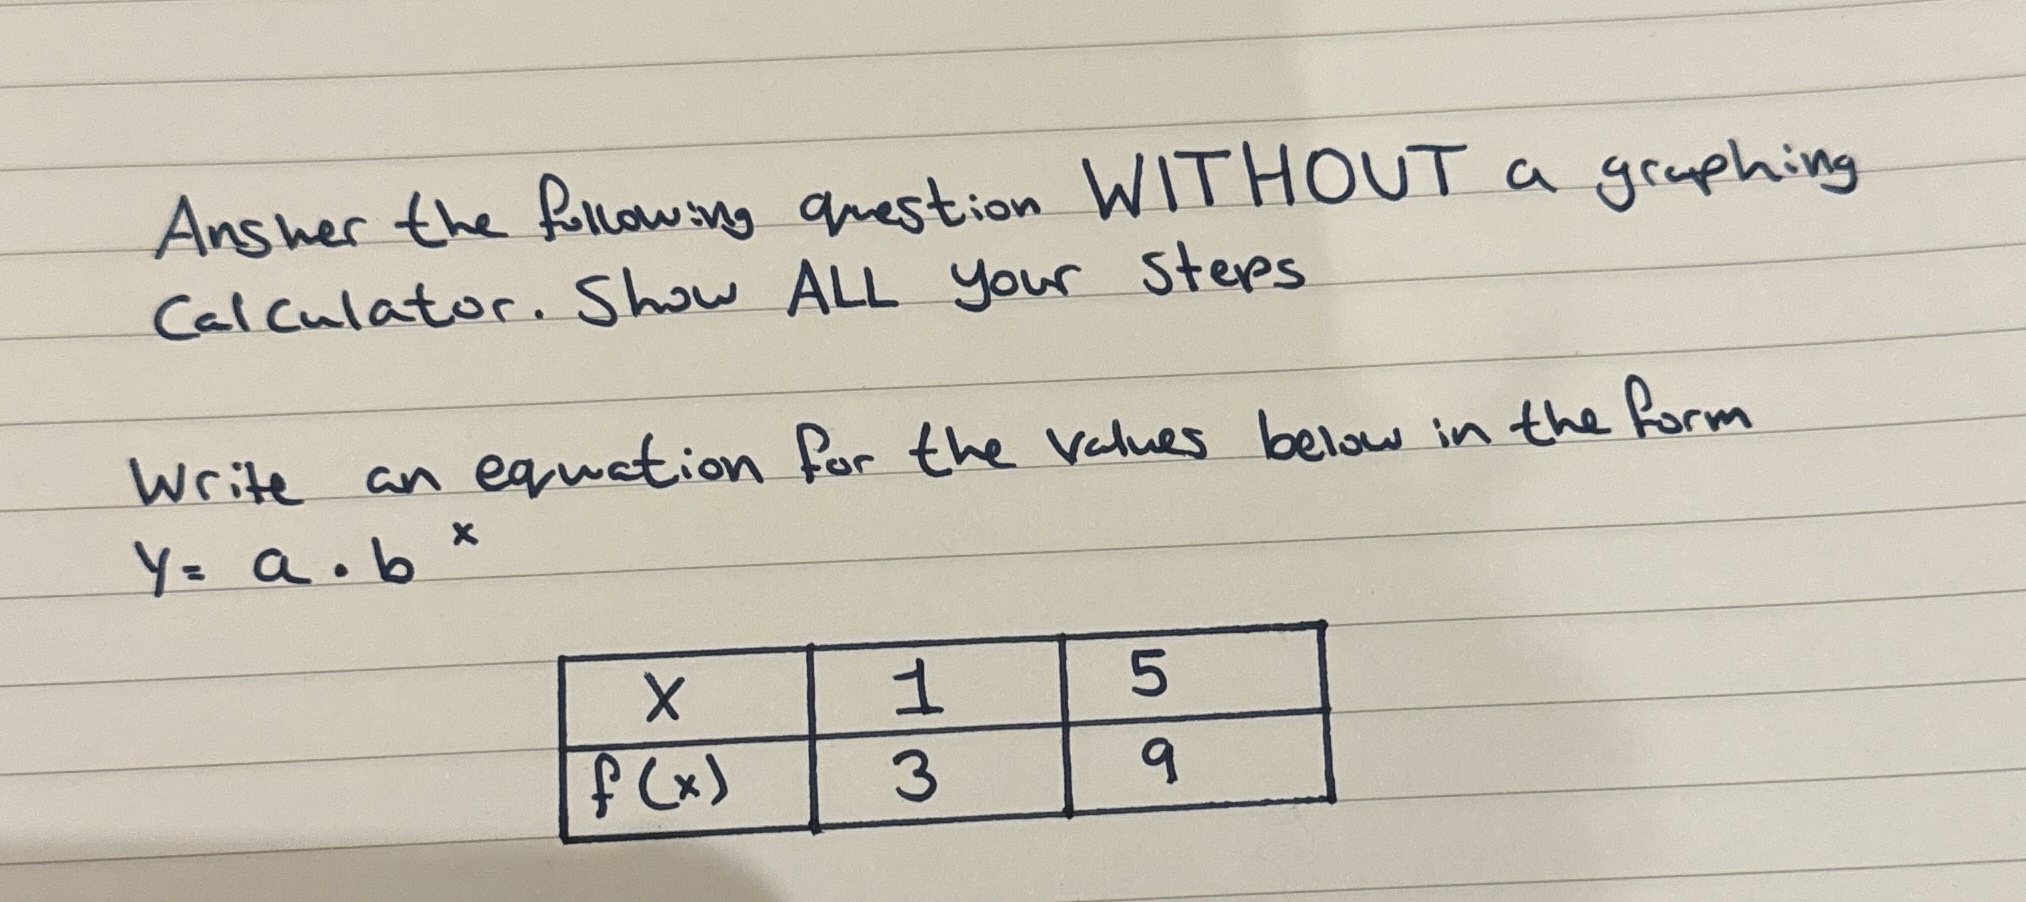 Answer the following question WITHOUT a graphing
Calculator. Show ALL your steps
Write an equation for the values below in the form
y= a · b ˣ
X 1 5
f(x) 3 9